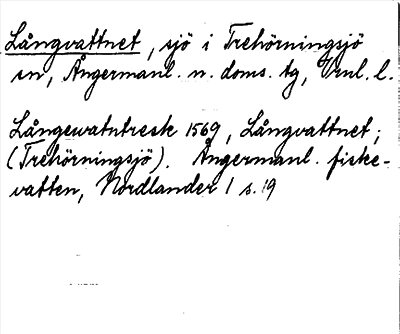 Långvattnet, sjö i Trehörningsjö
sn, Ångermanl. n. doms. tg, Vrnl. l.
Långewatntresk 1569, Långvattnet;
(Trehörningsjö). Ångermanl. fiske-
vatten, Nordlander 1 s. 19